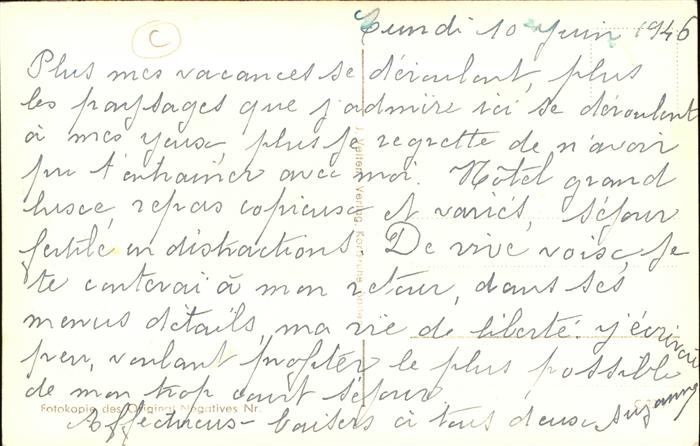 C
Lundi 10 Juin 1946
Plus mes vacances se déroulent, plus
les paysages que j'admire ici se déroulent
à mes yeux plus je regrette de n'avoir
pu t'entraîner avec moi. Hôtel grand
luxe, repas copieux et variés, séjour
fertile en distractions. De vive voix, je
te conterai à mon retour, dans ses
menus détails, ma vie de liberté. J'écrirai
peu, voulant profiter le plus possible
de mon trop court séjour.
Affectueux baisers à tous deux Suzanne
Fotokopie des Original Negatives Nr.
Verlag